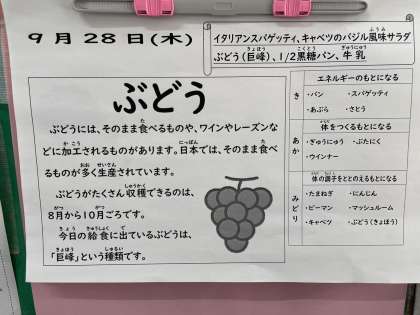 9月28日(木)
イタリアンスパゲッティ、キャベツのバジル風味サラダ
ぶどう(巨峰)、1/2黒糖パン、牛乳
ぶどう
ぶどうには、そのまま食べるものや、ワインやレーズンな
どに加工されるものがあります。日本では、そのまま食べ
るものが多く生産されています。
ぶどうがたくさん収穫できるのは、
8月から10月ごろです。
今日の給食に出ているぶどうは、
「巨峰」という種類です。
き
エネルギーのもとになる
・パン ・スパゲッティ
・あぶら ・さとう
あか
体をつくるもとになる
・ぎゅうにゅう ・ぶたにく
・ウインナー
みどり
体の調子をととのえるもとになる
・たまねぎ ・にんじん
・ピーマン ・マッシュルーム
・キャベツ ・ぶどう(きょほう)